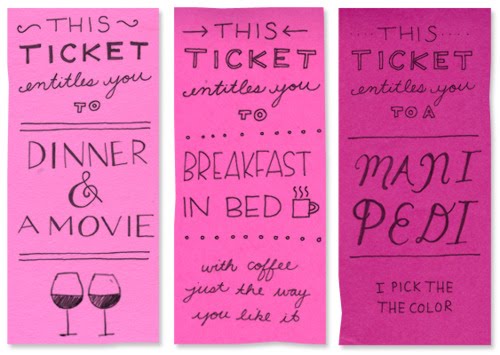 THIS
TICKET
entitles you
TO
DINNER
&
A MOVIE
THIS
TICKET
entitles you
TO
BREAKFAST
IN BED
with coffee
just the way
you like it
THIS
TICKET
entitles you
TO A
MANI
PEDI
I PICK THE
THE COLOR